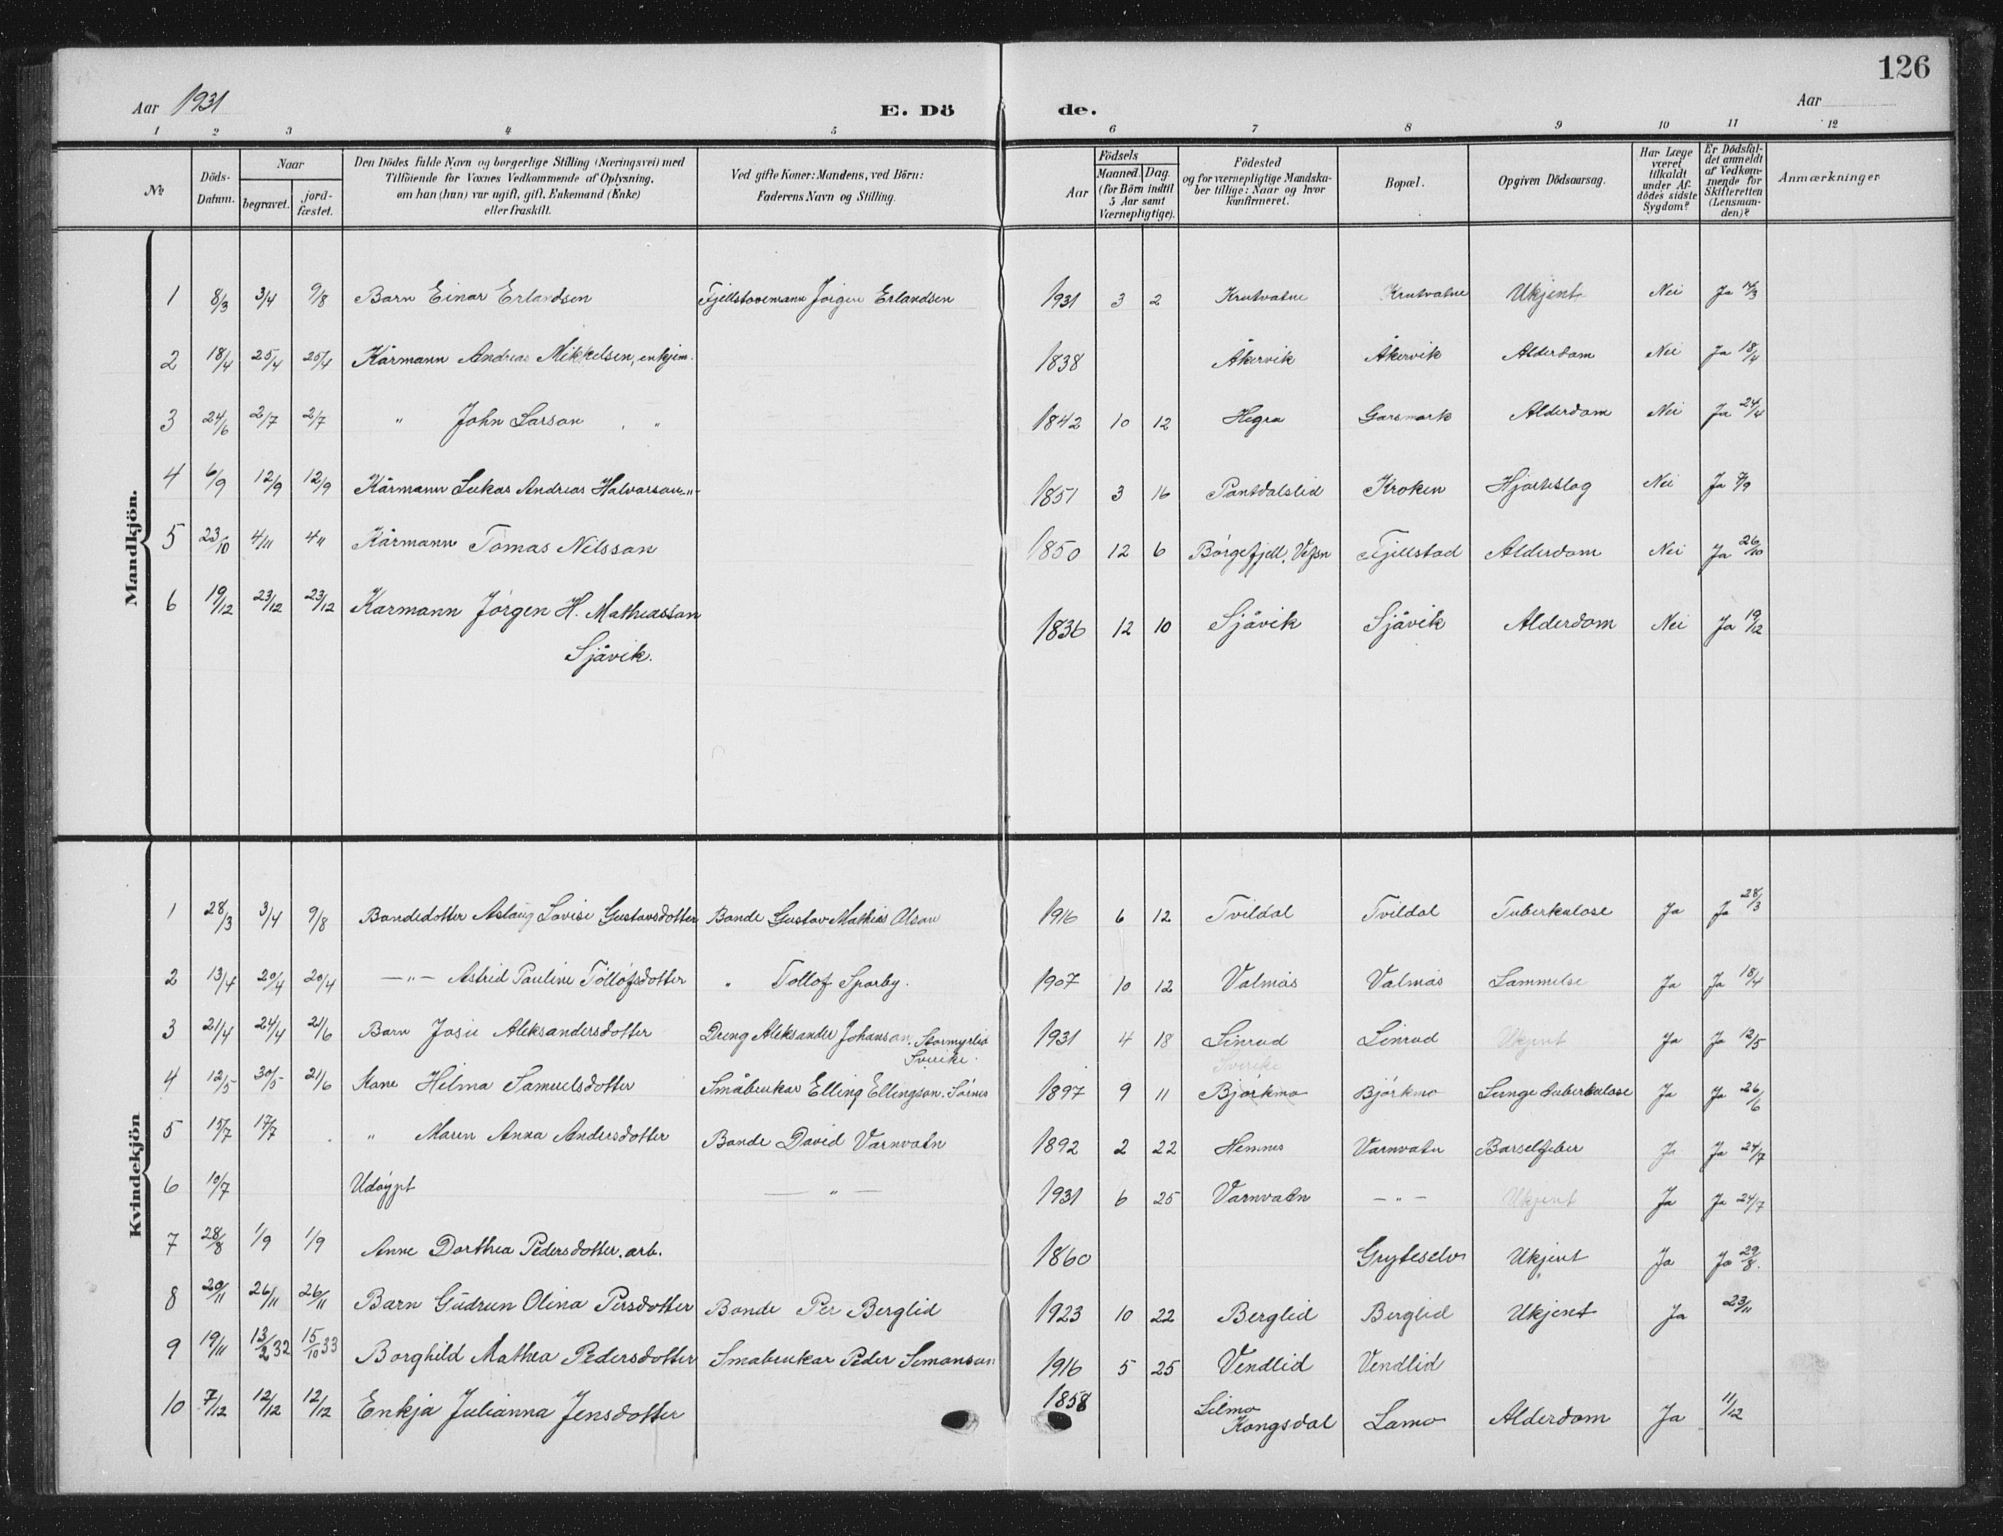 126
Aar 1931 E. Dö de. Aar
1 2 3 4 5 6 7 8 9 10 11 12
No
Döds-Datum.
Naar
begravet.
jord-fæstet.
Den Dödes fulde Navn og borgerlige Stilling (Næringsvei) med
Tilföiende for Voxnes Vedkommende af Oplysning,
om han (hun) var ugift, gift, Enkemand (Enke)
eller fraskilt.
Ved gifte Koner: Mandens, ved Börn:
Faderens Navn og Stilling.
Födsels
Aar
Maaned. Dag.
(for Börn indtil
5 Aar samt
Værnepligtige).
Födested
og for værnepligtige Mandska-
ber tillige: Naar og hvor
konfirmeret.
Bopæl.
Opgiven Dödsaarsag.
Har Læge
været
tilkaldt
under Af-
dödes sidste
Sygdom?
Er Dödsfal-
det anmeldt
af Vedkom-
mende for
Skifteretten
(Lensman-
den)?
Anmærkninger
Mandkjön.
1 8/3 3/4 9/8 Barn Einar Erlandsen Fjellstovemann Jørgen Erlandsen 1931 3 2 Krutvatne Krutvatne Ukjent Nei Ja 14/3
2 18/4 25/4 25/4 Kårmann Andreas Mikkelsen, enkjem. 1838 Åkervik Åkervik Alderdom Nei Ja 18/4
3 24/6 2/7 2/7 " John Larson " " 1842 10 12 Hegra Garsmark Alderdom Nei Ja 24/4
4 6/9 12/9 12/9 Kårmann Lukas Andreas Halvarson -"- 1851 3 16 Pantdalslid Kroken Hjarteslag Nei Ja 7/9
5 23/10 4/11 4/11 Kårmann Tomas Nilsson 1850 12 6 Börgefjell, Vefsn Fjellstad Alderdom Nei Ja 26/10
6 19/12 23/12 23/12 Karmann Jørgen H. Mathiasson 1836 12 10 Sjåvik Sjåvik Alderdom Nei Ja 19/12
Sjåvik.
Kvindekjön
1 28/3 3/4 9/8 Bondedotter Aslaug Lovise Gustavsdotter Bonde Gustav Mathias Olson 1916 6 12 Tvildal Tvildal Tuberkulose Ja Ja 28/3
2 13/4 20/4 20/4 -"- Astrid Pauline Tollofsdotter " Tollof Sparby. 1907 10 12 Valmås Valmås Lammelse Ja Ja 18/4
3 21/4 24/4 21/6 Barn Josie Aleksandersdotter Dreng Aleksander Johanson, Stormyrlid 1931 4 18 Linrud Linrud Ukjent Ja Ja 12/5
Sverike. Sverike
4 12/5 30/5 21/6 Kone Hilma Samuelsdotter Småbrukar Elling Ellingson. Sørnes 1897 9 11 Bjørkmo Bjørkmo Lunge tuberkulose Ja Ja 26/6
5 15/7 17/7 . " Maren Anna Andersdotter Bonde David Varnvatn 1892 2 22 Hemnes Varnvatn Barselfeber Ja Ja 24/7
6 10/7 Udøypt — " — 1931 6 25 Varnvatn -"- Ukjent Ja Ja 24/7
7 28/8 1/9 1/9 Anne Dorthea Pedersdotter. arb. 1860 Gryteselv Ukjent Ja Ja 29/8.
8 20/11 26/11 26/11 Barn Gudrun Olina Persdotter Bonde Per Berglid 1923 10 22 Berglid Berglid Ukjent Ja 23/11
9 19/11 13/2 32 15/10 33 Borghild Mathea Pedersdotter Småbrukar Peder Simonson 1916 5 25 Vendlid Vendlid
10 7/12 12/12 12/12 Enkja Julianna Jensdotter 1858 Lilmo Kongsdal Lamo Alderdom Ja 11/12